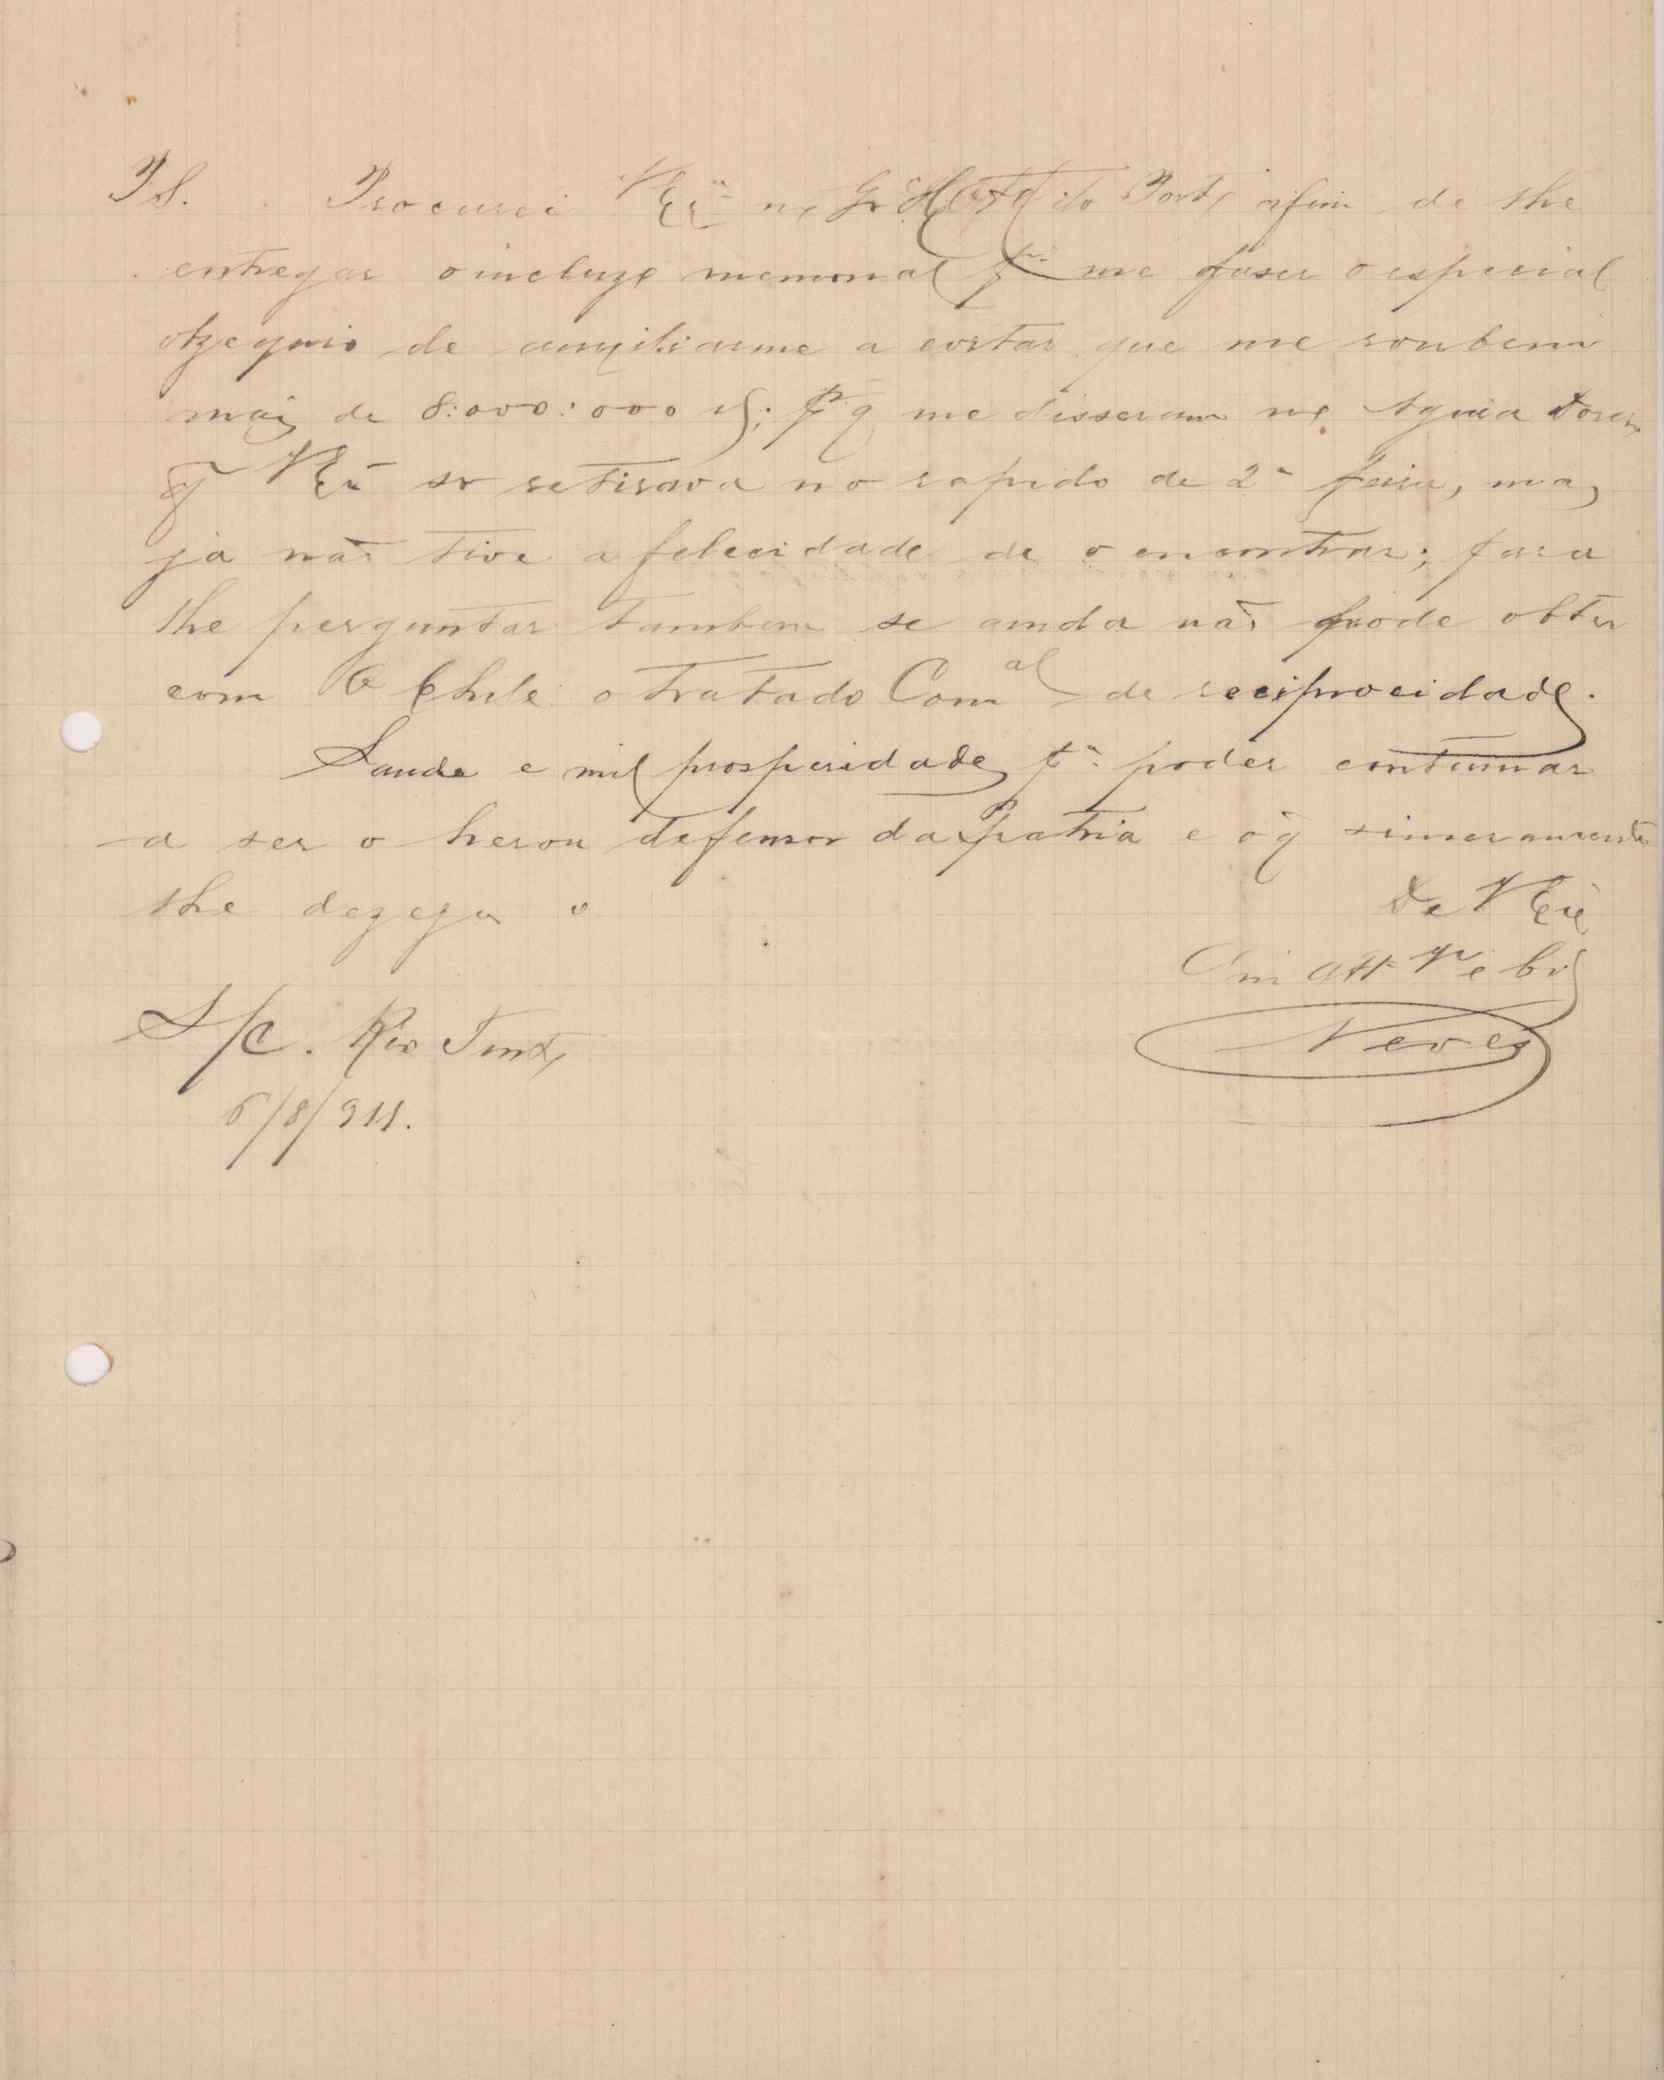 PS. Procurei VExª no Gr Hotel do Porto afim de lhe
entregar o incluzo memorial pª me faser o especial
obzequio de auxiliarme a evitar que me roubem
mais de 8:000:000 rs; pr q me disseram no Aguia Douro
q VExª se retirava no rapido de 2ª feira, mas
já não tive a felecidade de o encontrar; para
lhe perguntar tambem se ainda não pode obter
com o Chile o tratado Comal de reciprocidade.
Saude e mil prosperidades pª poder continuar
a ser o heroe defensor da patria e o q sinceramente
lhe dezeja o De VExª
Am att Vr e
S/c. Rio Tinto Neves
6/8/911.